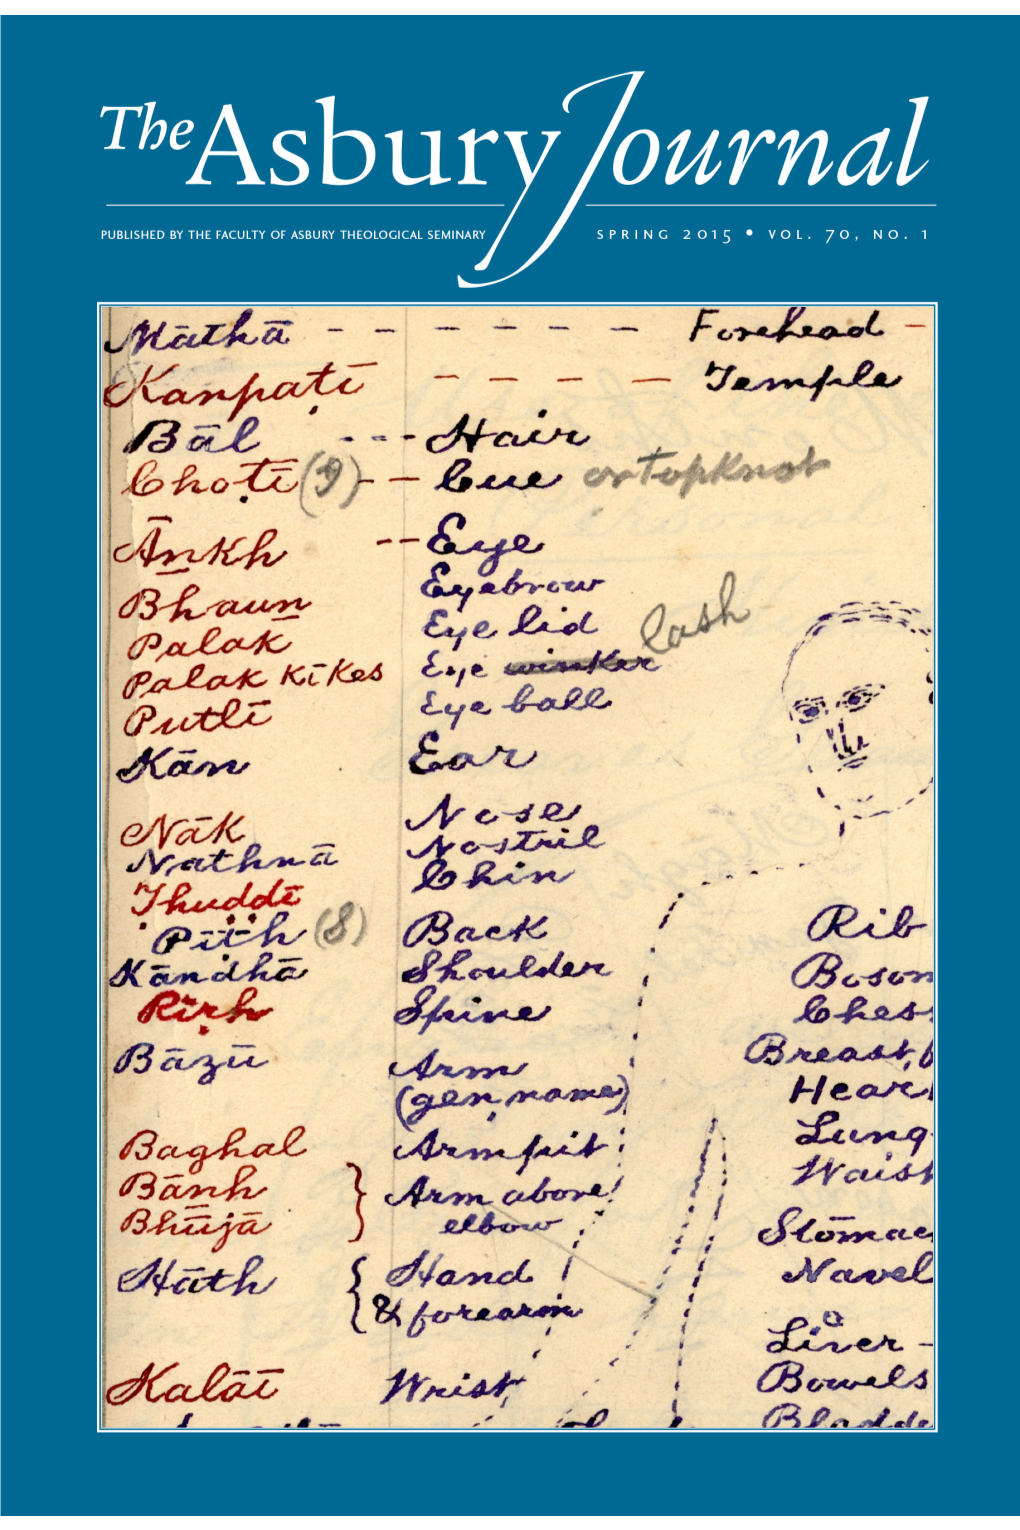 The Asbury Journal
PUBLISHED BY THE FACULTY OF ASBURY THEOLOGICAL SEMINARY
SPRING 2015 • VOL. 70, NO. 1
Māthā - - - - - - Forehead -
Kanpaṭī - - - - Temple
Bāl - - - Hair
Choṭī (9) - - Cue or topknot
Ānkh - - Eye
Bhaun Eyebrow
Palak Eye lid
Palak kī kes Eye winker lash
Putlī Eye ball
Kān Ear
Nāk Nose
Nathnā Nostril
Ṭhuddī Chin
Pīṭh (8) Back Rib
Kāndhā Shoulder Bosom
Rīṛh Spine Ches
Bāzū Arm Breast, b
(gen, name) Hear
Baghal Armpit Lung
Bānh } Arm above Waist
Bhūjā elbow Stōmac
Hāth { Hand Navel
& forearm
Liver -
Kalāī Wrist Bowels
Bladde